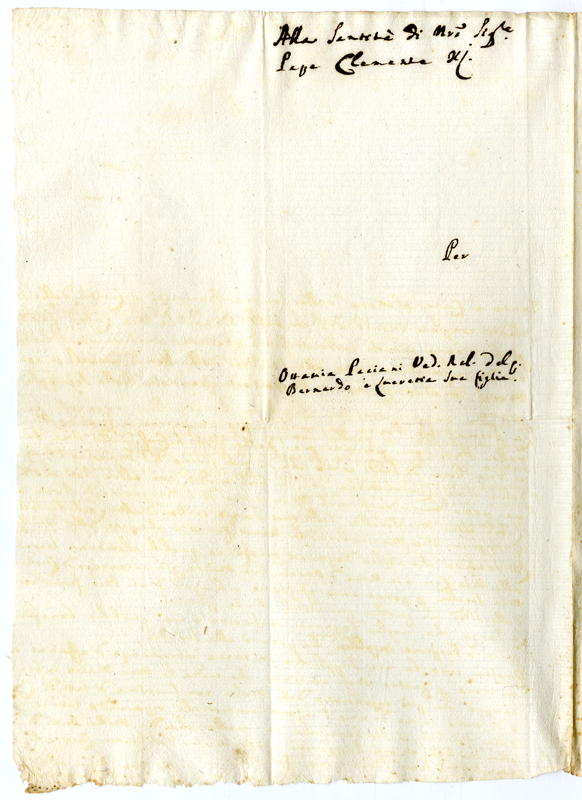 Alla Santità di Nrõ Sigre
Papa Clemente XI.
Per
Ottavia Paciani Ved. Rel. del q.
Bernardo è Lucretia Sua figlia.